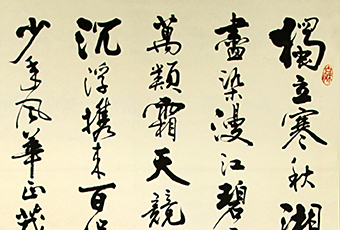 獨立寒秋湘
盡染漫江碧
萬類霜天競
沉浮攜來百侶
少年風華正茂